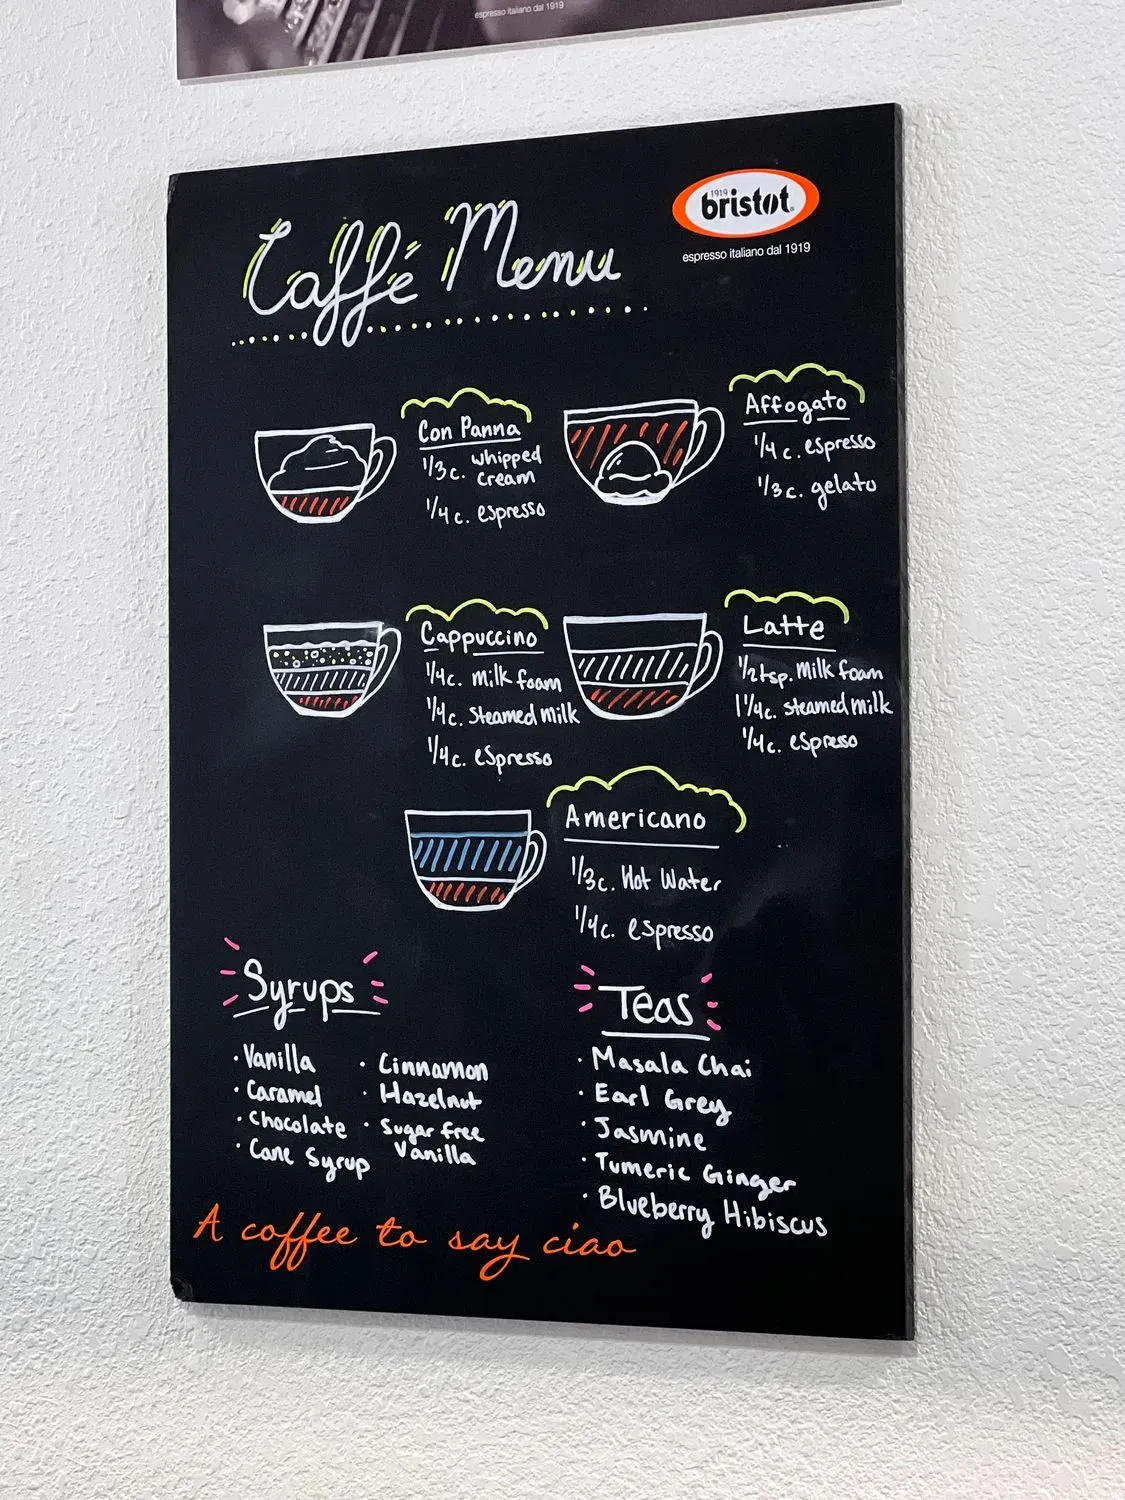 espresso italiano dal 1919
1919
bristot
espresso italiano dal 1919
Caffé Menu
Con Panna
1/3 c. whipped
cream
1/4 c. espresso
Affogato
1/4 c. espresso
1/3 c. gelato
Cappuccino
1/4 c. milk foam
1/4 c. steamed milk
1/4 c. espresso
Latte
1/2 tsp. milk foam
1 1/4 c. steamed milk
1/4 c. espresso
Americano
1/3 c. Hot Water
1/4 c. espresso
Syrups
· Vanilla
· Caramel
· Chocolate
· Cane Syrup
· Cinnamon
· Hazelnut
· Sugar free
Vanilla
Teas
· Masala Chai
· Earl Grey
· Jasmine
· Tumeric Ginger
· Blueberry Hibiscus
A coffee to say ciao